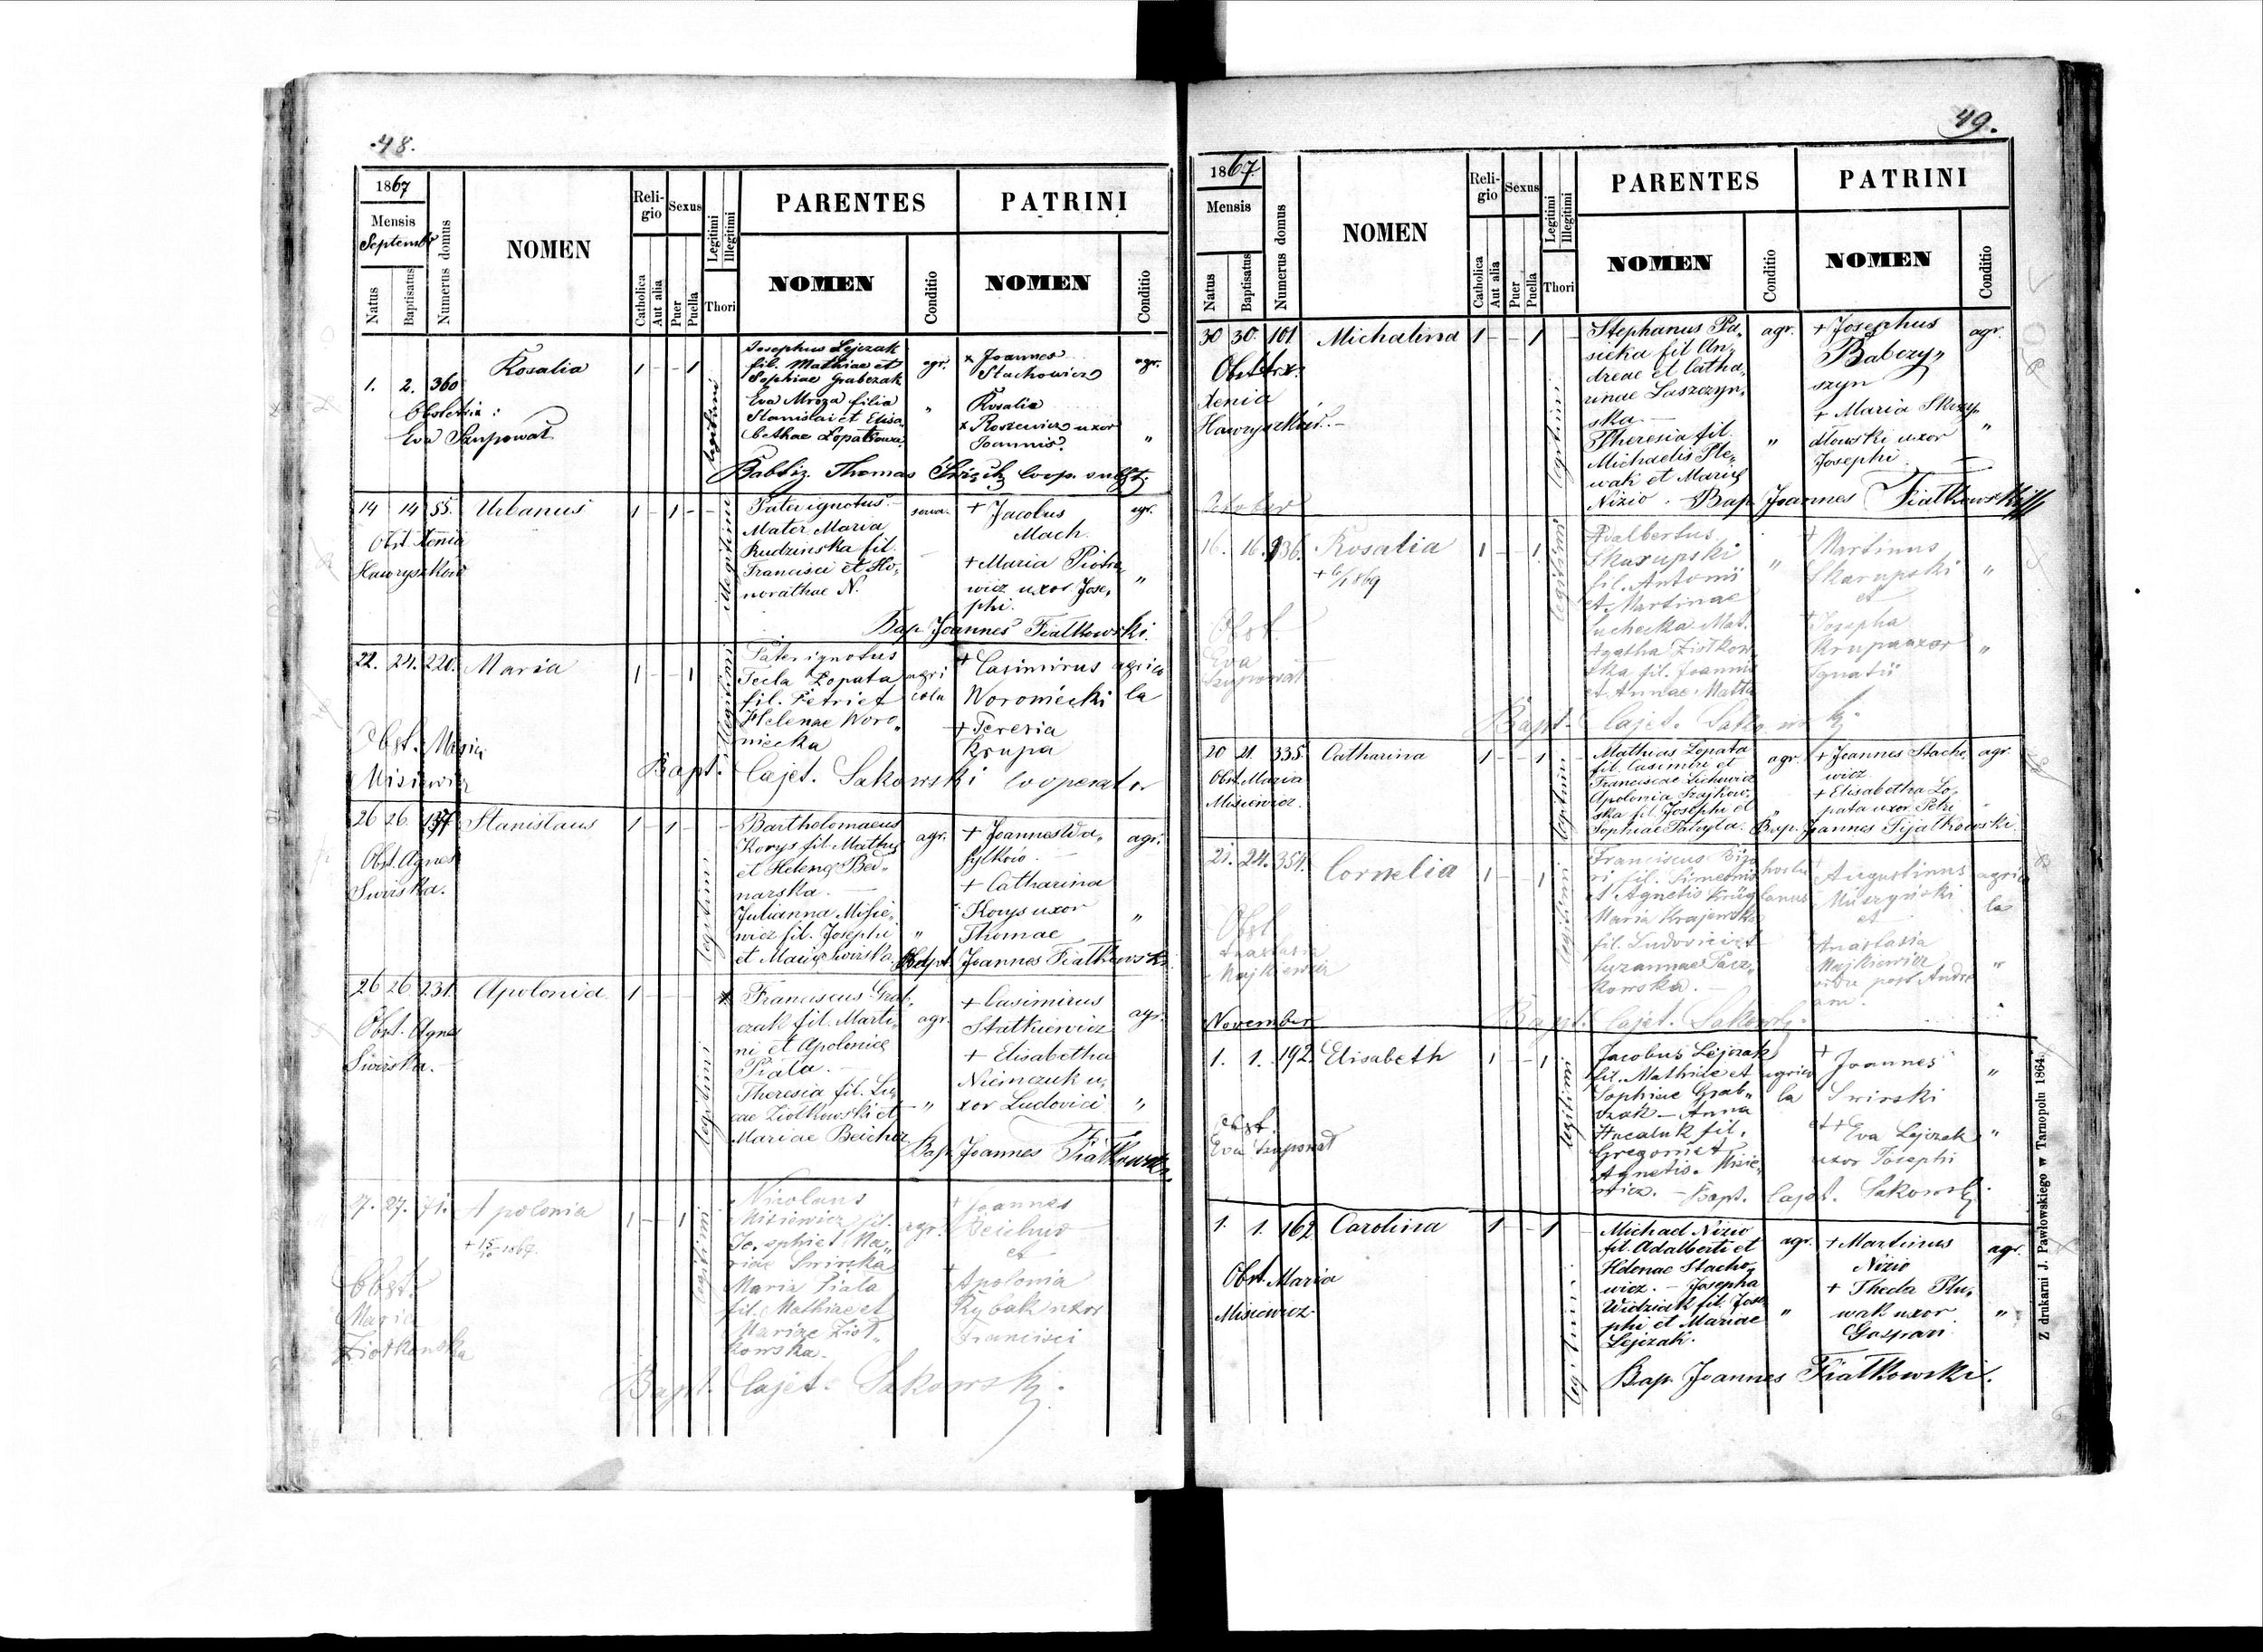 48.
1867
Mensis
Septembr
Natus
Baptisatus
Numerus domus
NOMEN
Religio
Catholica
Aut alia
Sexus
Puer
Puella
Legitimi
Illegitimi
Thori
PARENTES
NOMEN
Conditio
PATRINI
NOMEN
Conditio
1. 2. 360 Rosalia 1 - - 1
Obstetrix:
Eva Szuponat
legitimi
Josephus Lejczak
fil. Mathiae et
Sophiae Grabczak
Eva Mroza filia
Stanislai et Elisa
bethae Lopatowa
agr.
"
x Joannes
Stachowicz
Rosalia
x Roszewicz uxor
Joannis
agr.
"
Babtiz. Thomas coop. subst.
14 14 55. Urbanus 1 - 1 -
Obst. Xenia
Hawryszków
illegitimi
Pater ignotus
Mater Maria
Rudzinska fil.
Francisci et Ho,
norathae N.
+ Jacobus
Mach.
+ Maria Piotro
wicz uxor Jose,
phi.
agr.
"
Bap. Joannes Fiałkowski.
22. 24. 220. Maria 1 - - 1
Obst. Maria
Misiewicz
illegitimi
Pater ignotus
Tecla Łopata
fil. Petri et
Helenae Woro"
niecka
agri
cola
+ Casimirus
Woroniecki
+ Teresia
Krupa
agrico
la
Bapt. Cajet. Sakowski cooperator
26 26. 137 Stanislaus 1 - 1 -
Obst. Agnes
Swirska.
legitimi
Bartholomaeus
Korys fil. Mathię
et Helenę Bed"
narska.
Julianna Misie"
wicz fil. Josephi
et Marię Swirska.
agr.
"
+ Joannes Wa"
sylków
+ Catharina
Korys uxor
Thomae
agr.
"
Bapt. Joannes Fiałkowski
26 26. 231. Apolonia 1 - -
Obst. Agnes
Swirska.
legitimi
Franciscus Grab"
czak fil. Marti"
ni et Apolonię
Piala.
Theresia fil. Lu"
cae Ziołkowski et
Mariae Beicher
agr.
"
+ Casimirus
Statkiewicz
+ Elisabetha
Niemczuk u"
xor Ludovici
agr.
"
Bap. Joannes Fiałkowski
27. 27. 71. Apolonia 1 - - 1
+ 15/10 1867.
Obst.
Maria
Ziołkowska
legitimi
Nicolaus
Misiewicz fil.
Josephi et Ma"
riae Swirska
Maria Piala
fil. Mathiae et
Mariae Zioł"
kowska.
agr.
+ Joannes
et
+ Apolonia
Rybak uxor
Francisci
Bapt. Cajet. Sakowski.
49.
1867.
Mensis
Natus
Baptisatus
Numerus domus
NOMEN
Religio
Catholica
Aut alia
Sexus
Puer
Puella
Legitimi
Illegitimi
Thori
PARENTES
NOMEN
Conditio
PATRINI
NOMEN
Conditio
30 30. 101 Michalina 1 - - 1
Obstetrx:
Xenia
Hawryszków.
legitimi
Stephanus Pa"
siecka fil An"
dreae et Catha"
rinae Laszczyn"
ska
Theresia fil.
Michaelis Ple"
wak et Marię
Nizio.
agr.
"
+ Josephus
Babczy"
szyn
+ Maria Skrzy"
dłowski uxor
Josephi
agr.
"
Bap. Joannes Fiałkowski
October
16. 16. 336. Rosalia 1 - - 1
+ 6/1 1869
Obst.
Eva
Szuponat
legitimi
Adalbertus
Skarupski
fil. Antonii
et Martinae
Suchecka Mat.
Agatha Ziołkow"
ska fil. Joannis
et Annae Matta
"
+ Martinus
Skarupski
et
+ Josepha
Krupa uxor
Ignatii
"
"
Bapt. Cajet. Sakowski.
20 21. 335. Catharina 1 - - 1
Obst. Maria
Misiewicz.
legitimi
Mathias Łopata
fil. Casimiri et
Franciscae Lichowicz
Apolonia Szajkow"
ska fil. Josephi et
Sophiae Patryla.
agr.
"
+ Joannes Stacho"
wicz
+ Elisabetha Lo"
pata uxor Petri
agr.
"
Bap. Joannes Fijałkowski.
21. 24. 354. Cornelia 1 - - 1
Obst
Anastasia
Majkiewicz
legitimi
Franciscus
fil. Simeonis
et Agnetis Krüg
Maria Krajewska
fil. Ludovici et
Suzannae Pacz"
kowska.
hortu
lanus
+ Augustinus
Muszyński
et
Anastasia
Majkiewicz
vidua post Andre
am.
agrico
la
"
Bapt. Cajet. Sakowski.
November
1. 1. 192 Elisabeth 1 - - 1
Obst.
Eva Szuponat
legitimi
Jacobus Lejczak
fil. Mathiae et
Sophiae Grab"
czak - Anna
Hucaluk fil.
Gregorii et
Agnetis Misie"
wicz.
agrico
la
+ Joannes
Swirski
et + Eva Lejczak
uxor Josephi
"
"
Bapt. Cajet. Sakowski.
1. 1. 162 Carolina 1 - - 1
Obst. Maria
Misiewicz.
legitimi
Michael Nizio
fil. Adalberti et
Helenae Stacho"
wicz. - Josepha
Widziak fil. Jose"
phi et Mariae
Lejczak.
agr.
"
+ Martinus
Nizio
+ Thecla Plu"
wak uxor
Gaspari
agr.
"
Bap. Joannes Fiałkowski.
Z drukarni J. Pawłowskiego w Tarnopolu 1864.